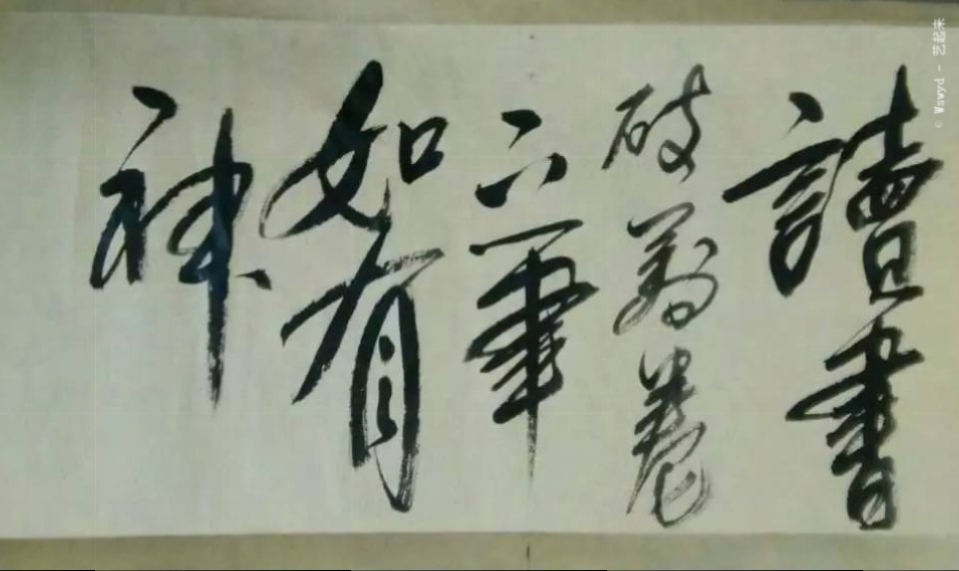 讀書
破萬卷
下筆
如有
神
© Wswyd - 艺起来